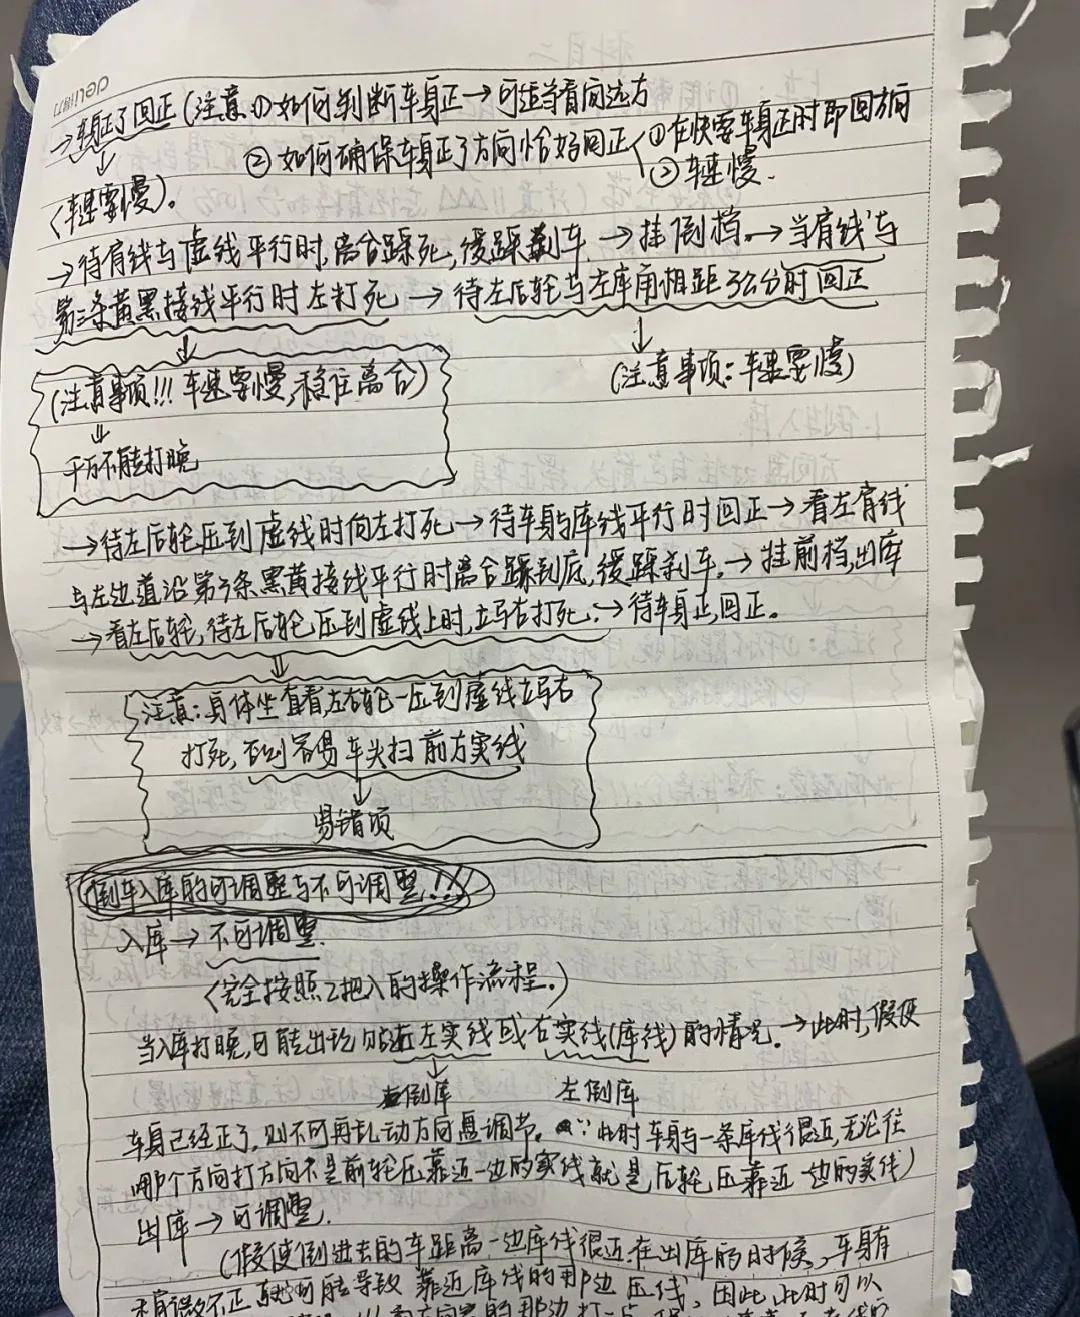 deli 得力
→车身正了回正(注意①如何判断车身正→可适当看向远方
②如何确保车身正了方向恰好回正 ①在快要车身正时即回方向
②车速慢.
(车速要慢)。
→待肩线与虚线平行时,离合踩死,缓踩刹车.→挂倒档.→当肩线与
第三条黄黑接线平行时左打死→待左后轮与左库角相距30公分时回正
(注意事项:车速要慢)
(注意事项!!!车速要慢,稳住离合)
千万不能打晚
→待左后轮压到虚线时向左打死→待车身与库线平行时回正→看左肩线
与左边道沿第3条黑黄接线平行时离合踩到底,缓踩刹车.→挂前档,出库
→看左后轮,待左后轮压到虚线上时,立马右打死.→待车身正,回正。
注意:身体坐直看,左后轮一压到虚线立马右
打死,否则容易车头扫前方实线
易错项
倒车入库的可调整与不可调整!!!
入库→不可调整.
(完全按照2把入的操作流程。)
当入库打晚,可能出现贴近左实线或右实线(库线)的情况.→此时,假使
右倒库 左倒库
车身已经正了,则不可再乱动方向盘调节。∵此时车身与一条库线很近,无论往
哪个方向打方向不是前轮压靠近一边的实线就是后轮压靠近一边的实线)
出库→可调整.
(假使倒进去的车距离一边库线很近.在出库的时候,车身有
不正就可能导致靠近库线的那边压线,因此此时可以